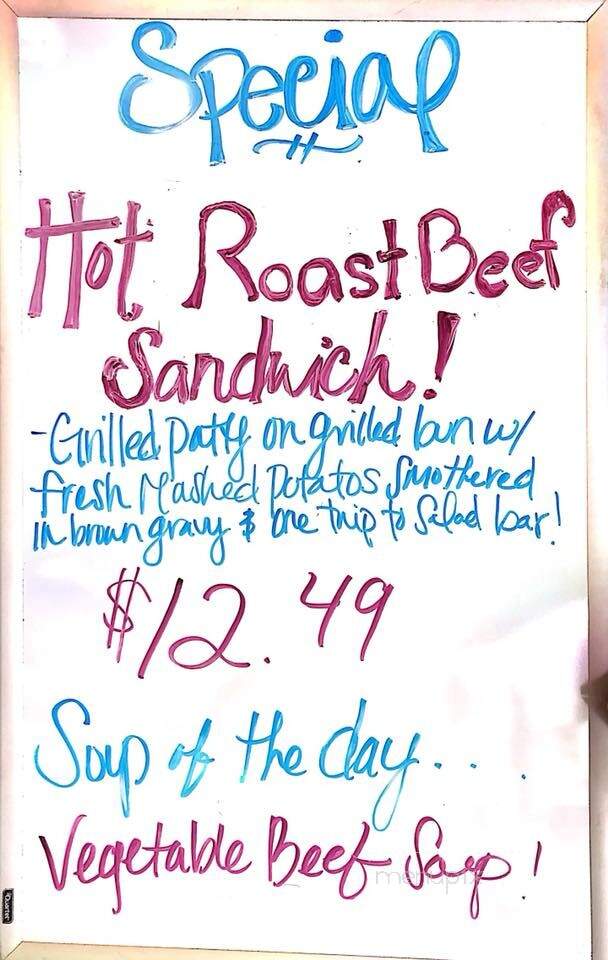 Special
Hot Roast Beef
Sandwich!
-Grilled patty on grilled bun w/
fresh Mashed Potatos Smothered
in brown gravy & one trip to Salad bar!
$12.49
Soup of the day...
Vegetable Beef Soup!
menupix
Quartet